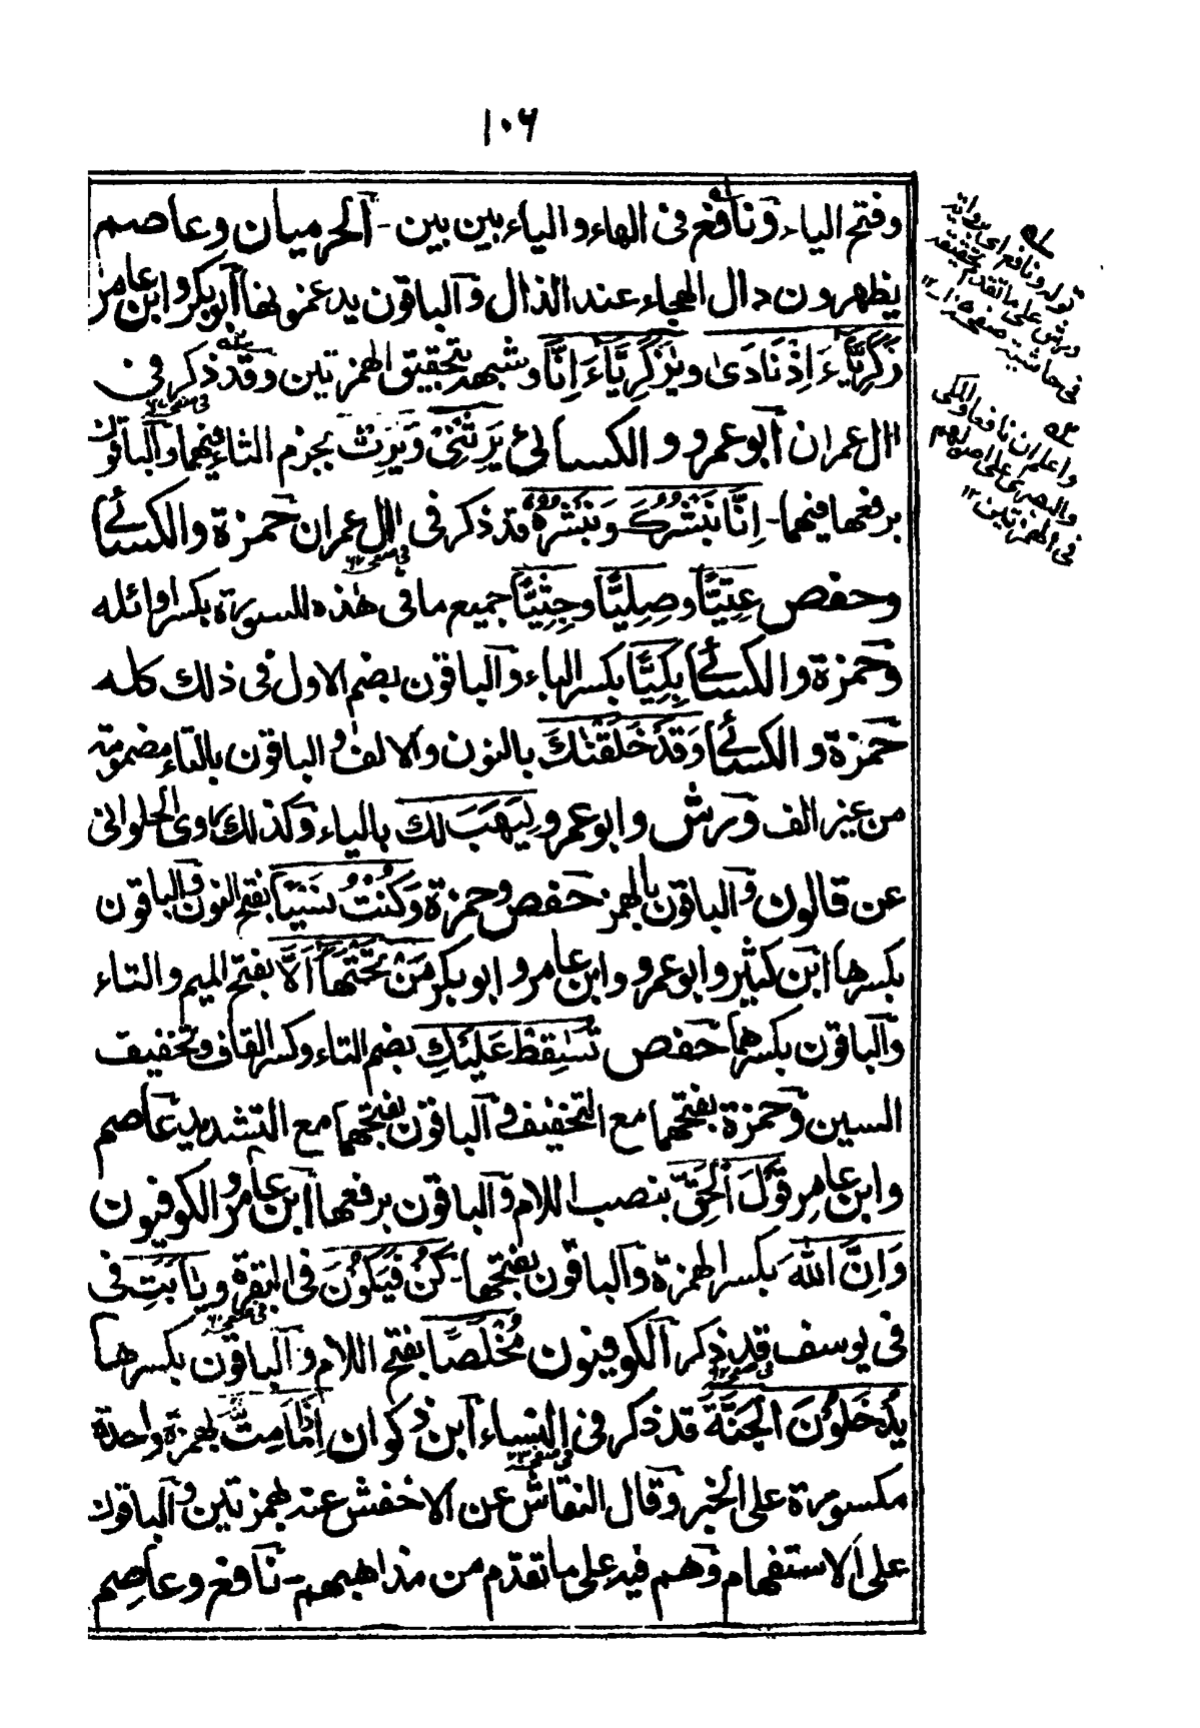 ١٠٦
وفتح الياء ونافع فى الهاء والياء بين بين - الحرميان وعاصم
يظهرون دال الهجاء عند الذال والباقون يدغمونها ابوبكر وابن عامر
زَكَرِيَّاءَ اِذْ نَادَىٰ ويٰزَكَرِيَّاءُ اِنَّا وشبهه بتحقيق الهمزتين وقد ذكر فى
اٰل عمران ابو عمرو والكسائى يَرِثْنِىْ وَيَرِثْ بجزم الثاء فيهما والباقون
برفعها فيهما - اِنَّا نُبَشِّرُكَ وَنُبَشِّرُهٗ قد ذكر فى اٰل عمران حمزة والكسائى
وحفص عِتِيًّا وصِلِيًّا وجِثِيًّا جميع ما فى هٰذه السورة بكسر اوائله
وحمزة والكسائى بِكِيًّا بكسر الباء والباقون بضم الاول فى ذلك كله
حمزة والكسائى وَقَدْ خَلَقْنٰكَ بالنون والالف والباقون بالتاء مضمومة
من غير الف ورش وابو عمرو لِيَهَبَ لَكِ بالياء وكذلك روى الحلوانى
عن قالون والباقون بالهمز حفص وحمزة وَكُنْتُ نَسْيًا بفتح النون والباقون
بكسرها ابن كثير وابو عمرو وابن عامر وابو بكر مَنْ تَحْتَهَا اَلَّا بفتح الميم والتاء
والباقون بكسرهما حفص تُسٰقِطْ عَلَيْكِ بضم التاء وكسر القاف وتخفيف
السين وحمزة بفتحهما مع التخفيف والباقون بفتحهما مع التشديد عاصم
وابن عامر قَوْلَ الْحَقِّ بنصب اللام والباقون برفعها ابن عامر والكوفيون
وَاِنَّ اللّٰهَ بكسر الهمزة والباقون بفتحها - كُنْ فَيَكُوْنُ فى البقرة ويا اَبَتِ فى
فى يوسف قد ذكر الكوفيون مُخْلَصًا بفتح اللام والباقون بكسرها
يُدْخَلُوْنَ الْجَنَّةَ قد ذكر فى النساء ابن ذكوان اِذَا مَا مِتُّ بهمزة واحدة
مكسورة على الخبر وقال النقاش عن الاخفش عنه بهمزتين والباقون
على الاستفهام وهم فيه على ما تقدم من مذاهبهم - نافع وعاصم
قوله ونافع اى برواية
ورش على ما تقدم تحقيقه
فى حاشية صفحه ١٠٥ ١٢
واعلم ان نافعا والمكى
والبصرى على اصولهم
فى الهمزتين ١٢